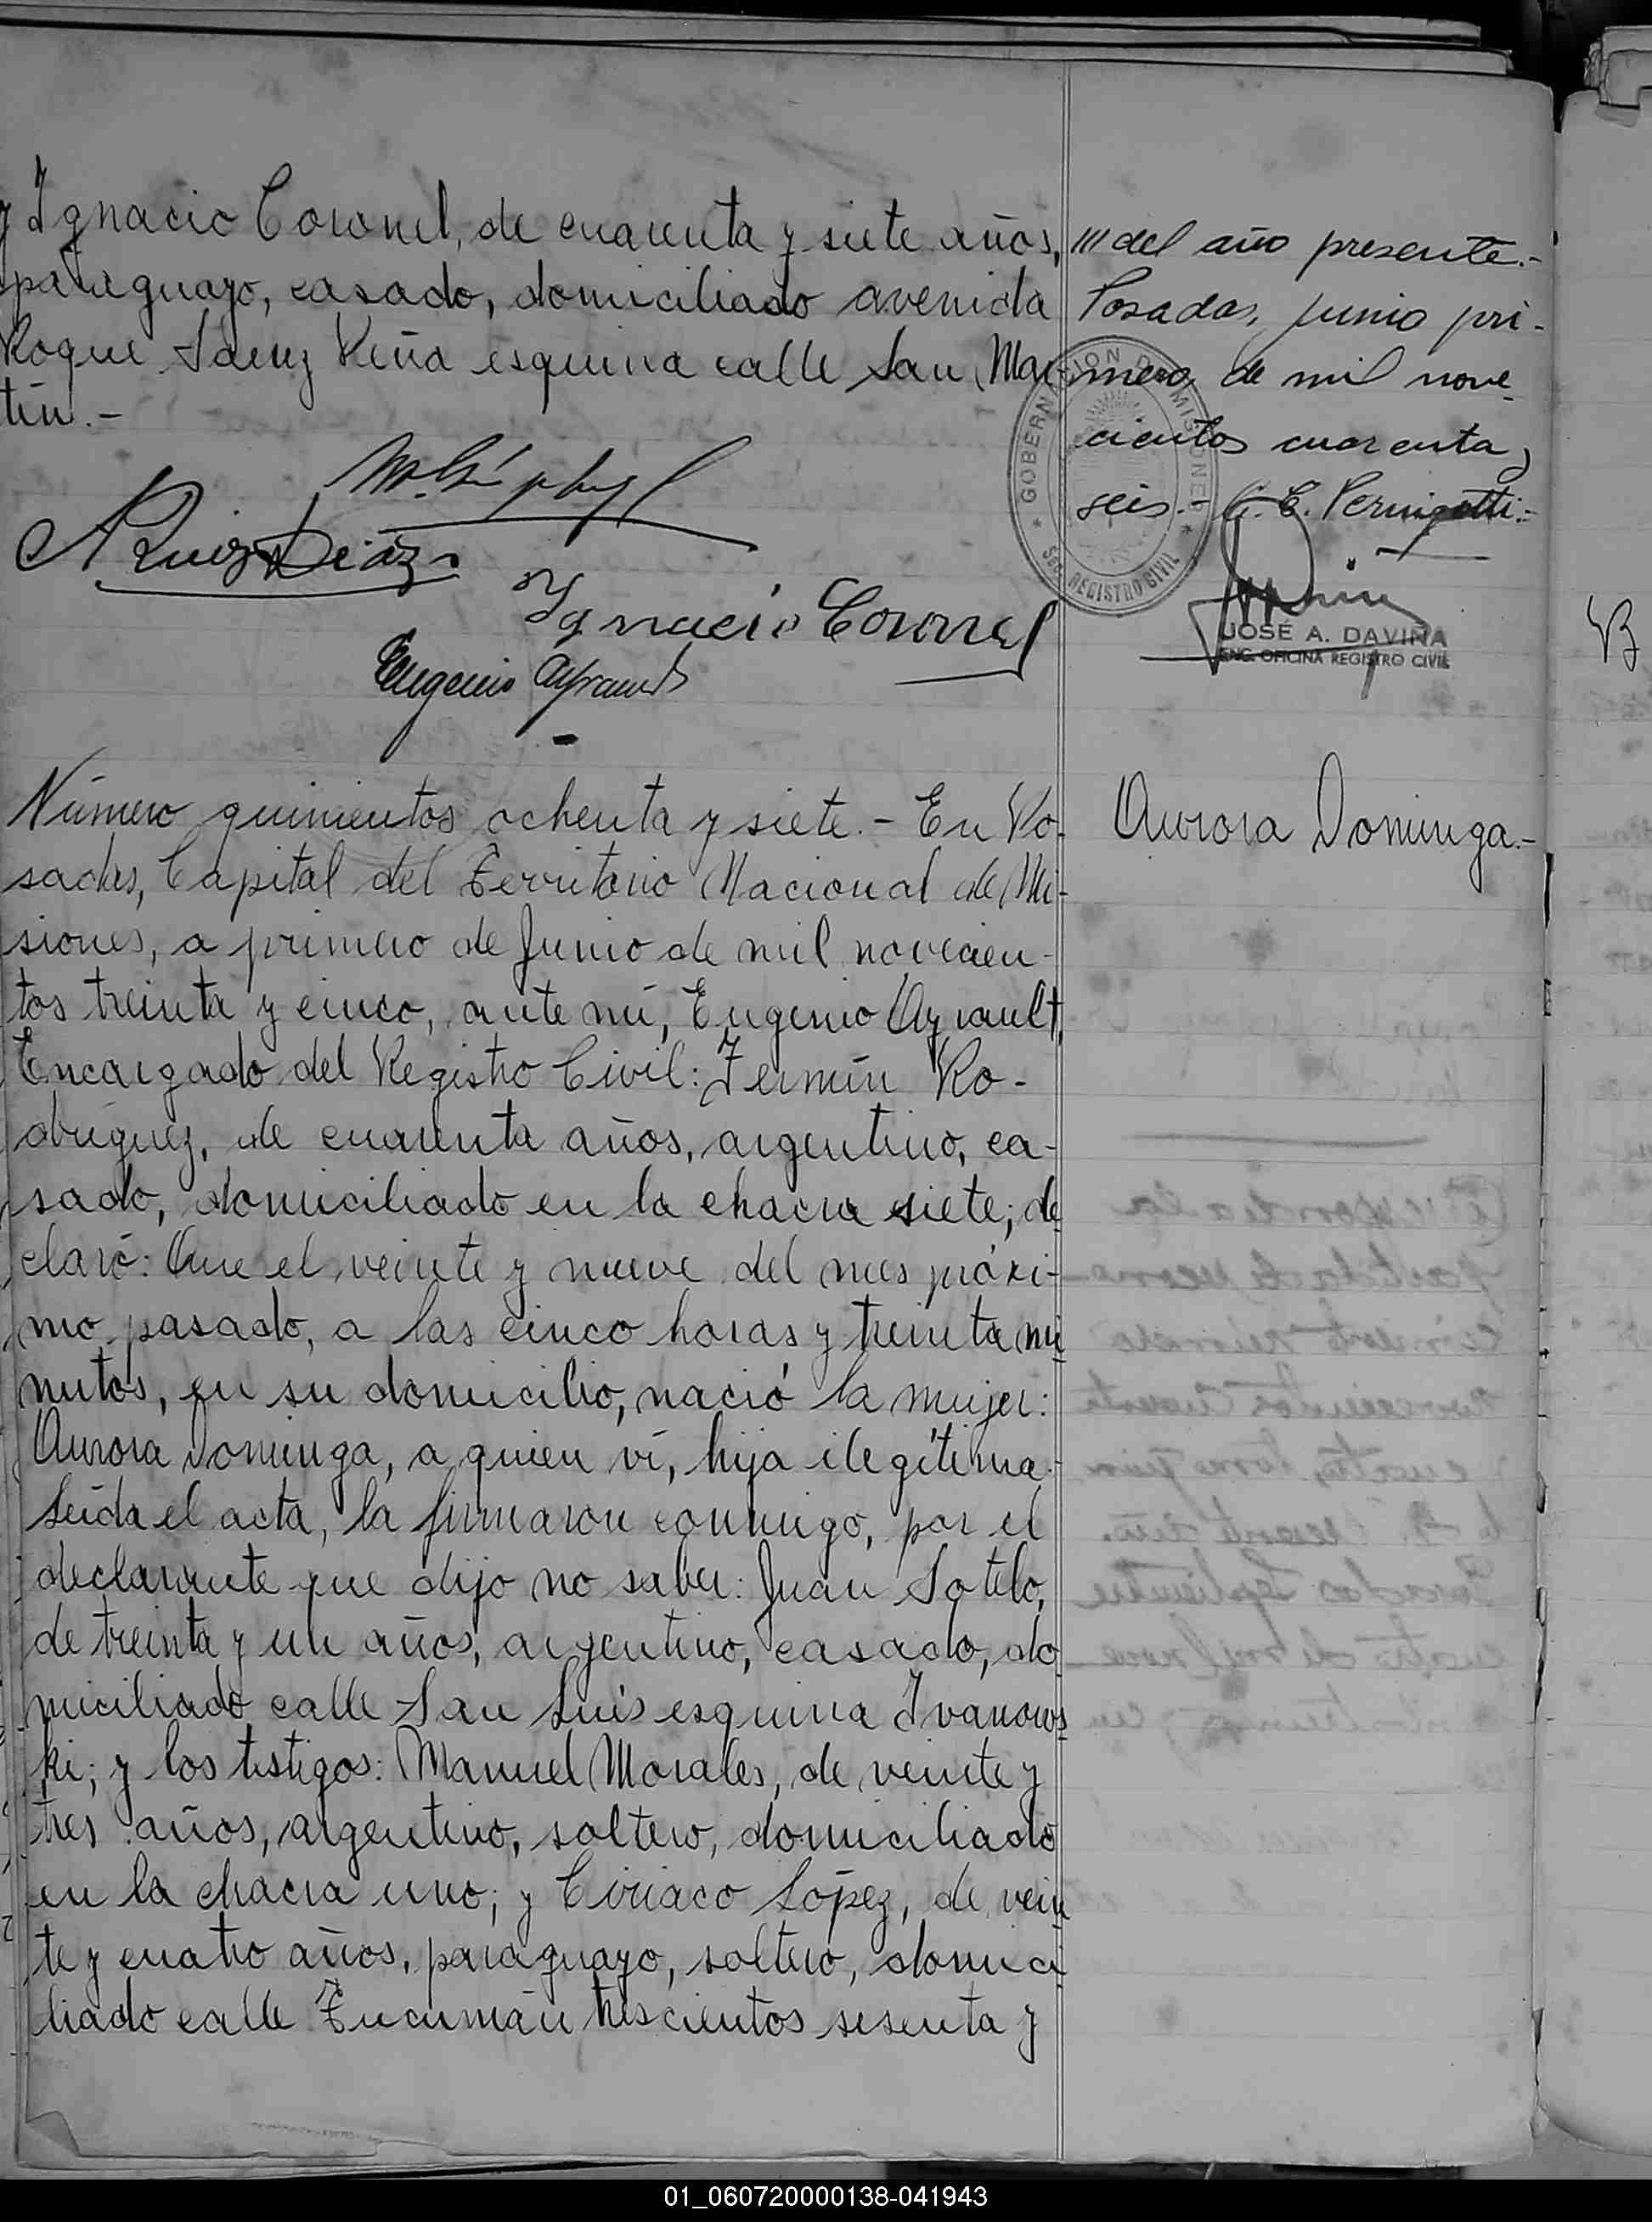 y Ignacio Coronel, de cuarenta y siete años,
paraguayo, casado, domiciliado avenida
Roque Saenz Peña esquina calle San Mar-
tín.-
A Ruiz Diaz
Ignacio Coronel
Eugenio Ayrault
/// del año presente.-
Posadas, junio pri-
mero de mil nove-
cientos cuarenta y
seis.- C. E. Pernigotti.-
GOBERNACION DE MISIONES
SEC. REGISTRO CIVIL
JOSÉ A. DAVIÑA
ENC. OFICINA REGISTRO CIVIL
Número quinientos ochenta y siete.- En Po-
sadas, Capital del Territorio Nacional de Mi-
siones, a primero de Junio de mil novecien-
tos treinta y cinco, ante mí, Eugenio Ayrault,
Encargado del Registro Civil: Fermín Ro-
dríguez, de cuarenta años, argentino, ca-
sado, domiciliado en la chacra siete; de
claró: Que el veinte y nueve del mes próxi-
mo pasado, a las cinco horas y treinta mi
nutos, en su domicilio, nació la mujer:
Aurora Dominga, a quien ví, hija ilegítima.-
Leída el acta, la firmaron conmigo, por el
declarante que dijo no saber: Juan Sotelo,
de treinta y un años, argentino, casado, do
miciliado calle San Luis esquina Ivanows
ki; y los testigos: Manuel Morales, de veinte y
tres años, argentino, soltero, domiciliado
en la chacra uno; y Ciriaco López, de vein
te y cuatro años, paraguayo, soltero, domici
liado calle Tucumán trescientos sesenta y
Aurora Dominga.-
01_060720000138-041943